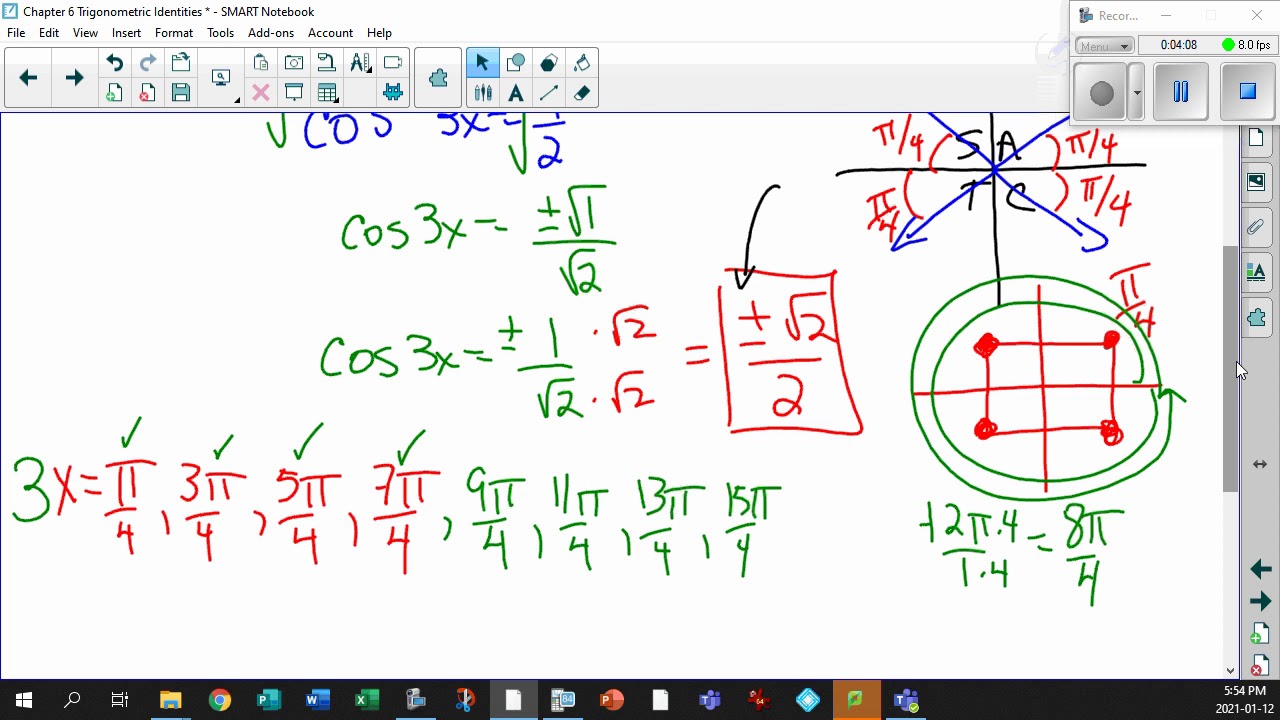 Chapter 6 Trigonometric Identities * - SMART Notebook
Recor...
File Edit View Insert Format Tools Add-ons Account Help
Menu 0:04:08 8.0 fps
√cos 3x = √1/2
π/4 S A π/4
π/4 T C π/4
cos 3x = ±√1/√2
π/4
cos 3x = ± 1/√2 · √2/√2 = ±√2/2
3x = π/4, 3π/4, 5π/4, 7π/4, 9π/4, 11π/4, 13π/4, 15π/4
+2π·4/1·4 = 8π/4
5:54 PM
2021-01-12